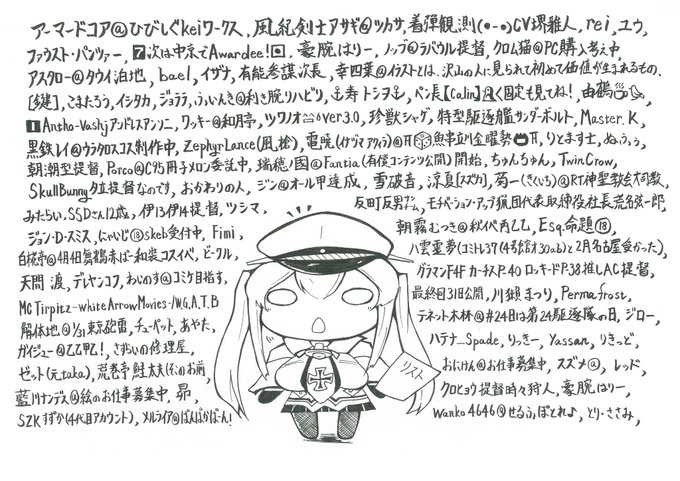 アーマードコア@ひびしぐkeiワークス、風紀剣士アサギ@ツカサ、着弾観測(●-●)CV堺雅人、rei、ユウ、
ファウスト・パンツァー、7次は中京でAwardee!、豪腕はりー、ノップ@ラバウル提督、クロム猫@PC購入考え中、
アスタロー@タウイ泊地、bael、イザナ、有能参謀次長、幸四葉@イラストとは、沢山の人に見られて初めて価値が生まれるもの、
[鍵]、こまたろう、イシタカ、ジョララ、ふいんき@利き腕リハビリ、寿トシヲ、ペン長【Calin】固定も見てね!、由鶴
1Antho-Vashjアンドレスアンソニ、ワッキー@和月亭、ツワノオver3.0、珍獣シャゲ、特型駆逐艦サンダーボルト、Master.K、
黒鉄レイ@ラクロスコス制作中、ZephyrLance(風槍)、電脳(イナヅマアクゥ)@魚串立川金曜勢、りとます士、ぬぅぅぅ、
朝潮型提督、Porco@C95冊子メロン委託中、瑞穂ノ国@Fantia(有償コンテンツ公開)開始、ちゅんちゅん、TwinCrow、
SkullBunny夕立提督なのです、おかわりの人、ジン@オール甲達成、雪破音、涼夏[スズカ]、菊一(きくいち)@RT神聖教会大司教、
みたらい、SSDさん12歳、伊13伊14提督、ツシマ、
反町反男チーム、モチベーション・アップ猟団代表取締役社長荒名弦一郎
ジョン・D・スミス、にゃいじ⑬@skeb受付中、Fimi、
朝霧むつき@秋イベ丙乙乙、Esq.命題⑱、
白桜亭@4月4日舞鶴赤ばー和装コスイベ、ビークル、
八雲霊夢(コミトレ37(4号館さ30ab)と2月名古屋受かった)、
天間 渡、デレヤンコフ、わじのす@コミケ目指す、
グラマンF4FカーチスP.40ロッキードP.38推しAC提督、
MCTirpitz-whiteArrowMovies-/W.G.A.T.B
最終回31日公開、川獺まつり、Permafrost、
解体地@1/31東京砲雷、チューペット、あやた、
テネット木林@#24日は第24駆逐隊の日、ジロー、
ガイジュー@乙乙甲乙!、さすらいの修理屋、
ハテナ_Spade、りっきー、Yassan、りきっど、
ゼット(元taka)、荒巻亭鮭太夫(その)お前、
おにけん@お仕事募集中、スズメ、レッド、
藍川ナンデス@絵のお仕事募集中、昴、
クロヒョウ提督時々狩人、豪腕はりー、
SZKすずか(4代目アカウント)、メルライア@ぱんぱかぱーん!
Wanko4646@せるふ、ぽとれよ、とり・ささみ、
リスト